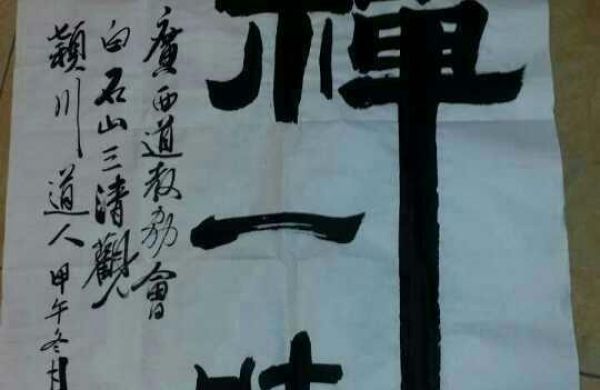 禪一味
廣西道教協會
白石山三清觀
穎川道人 甲午冬月